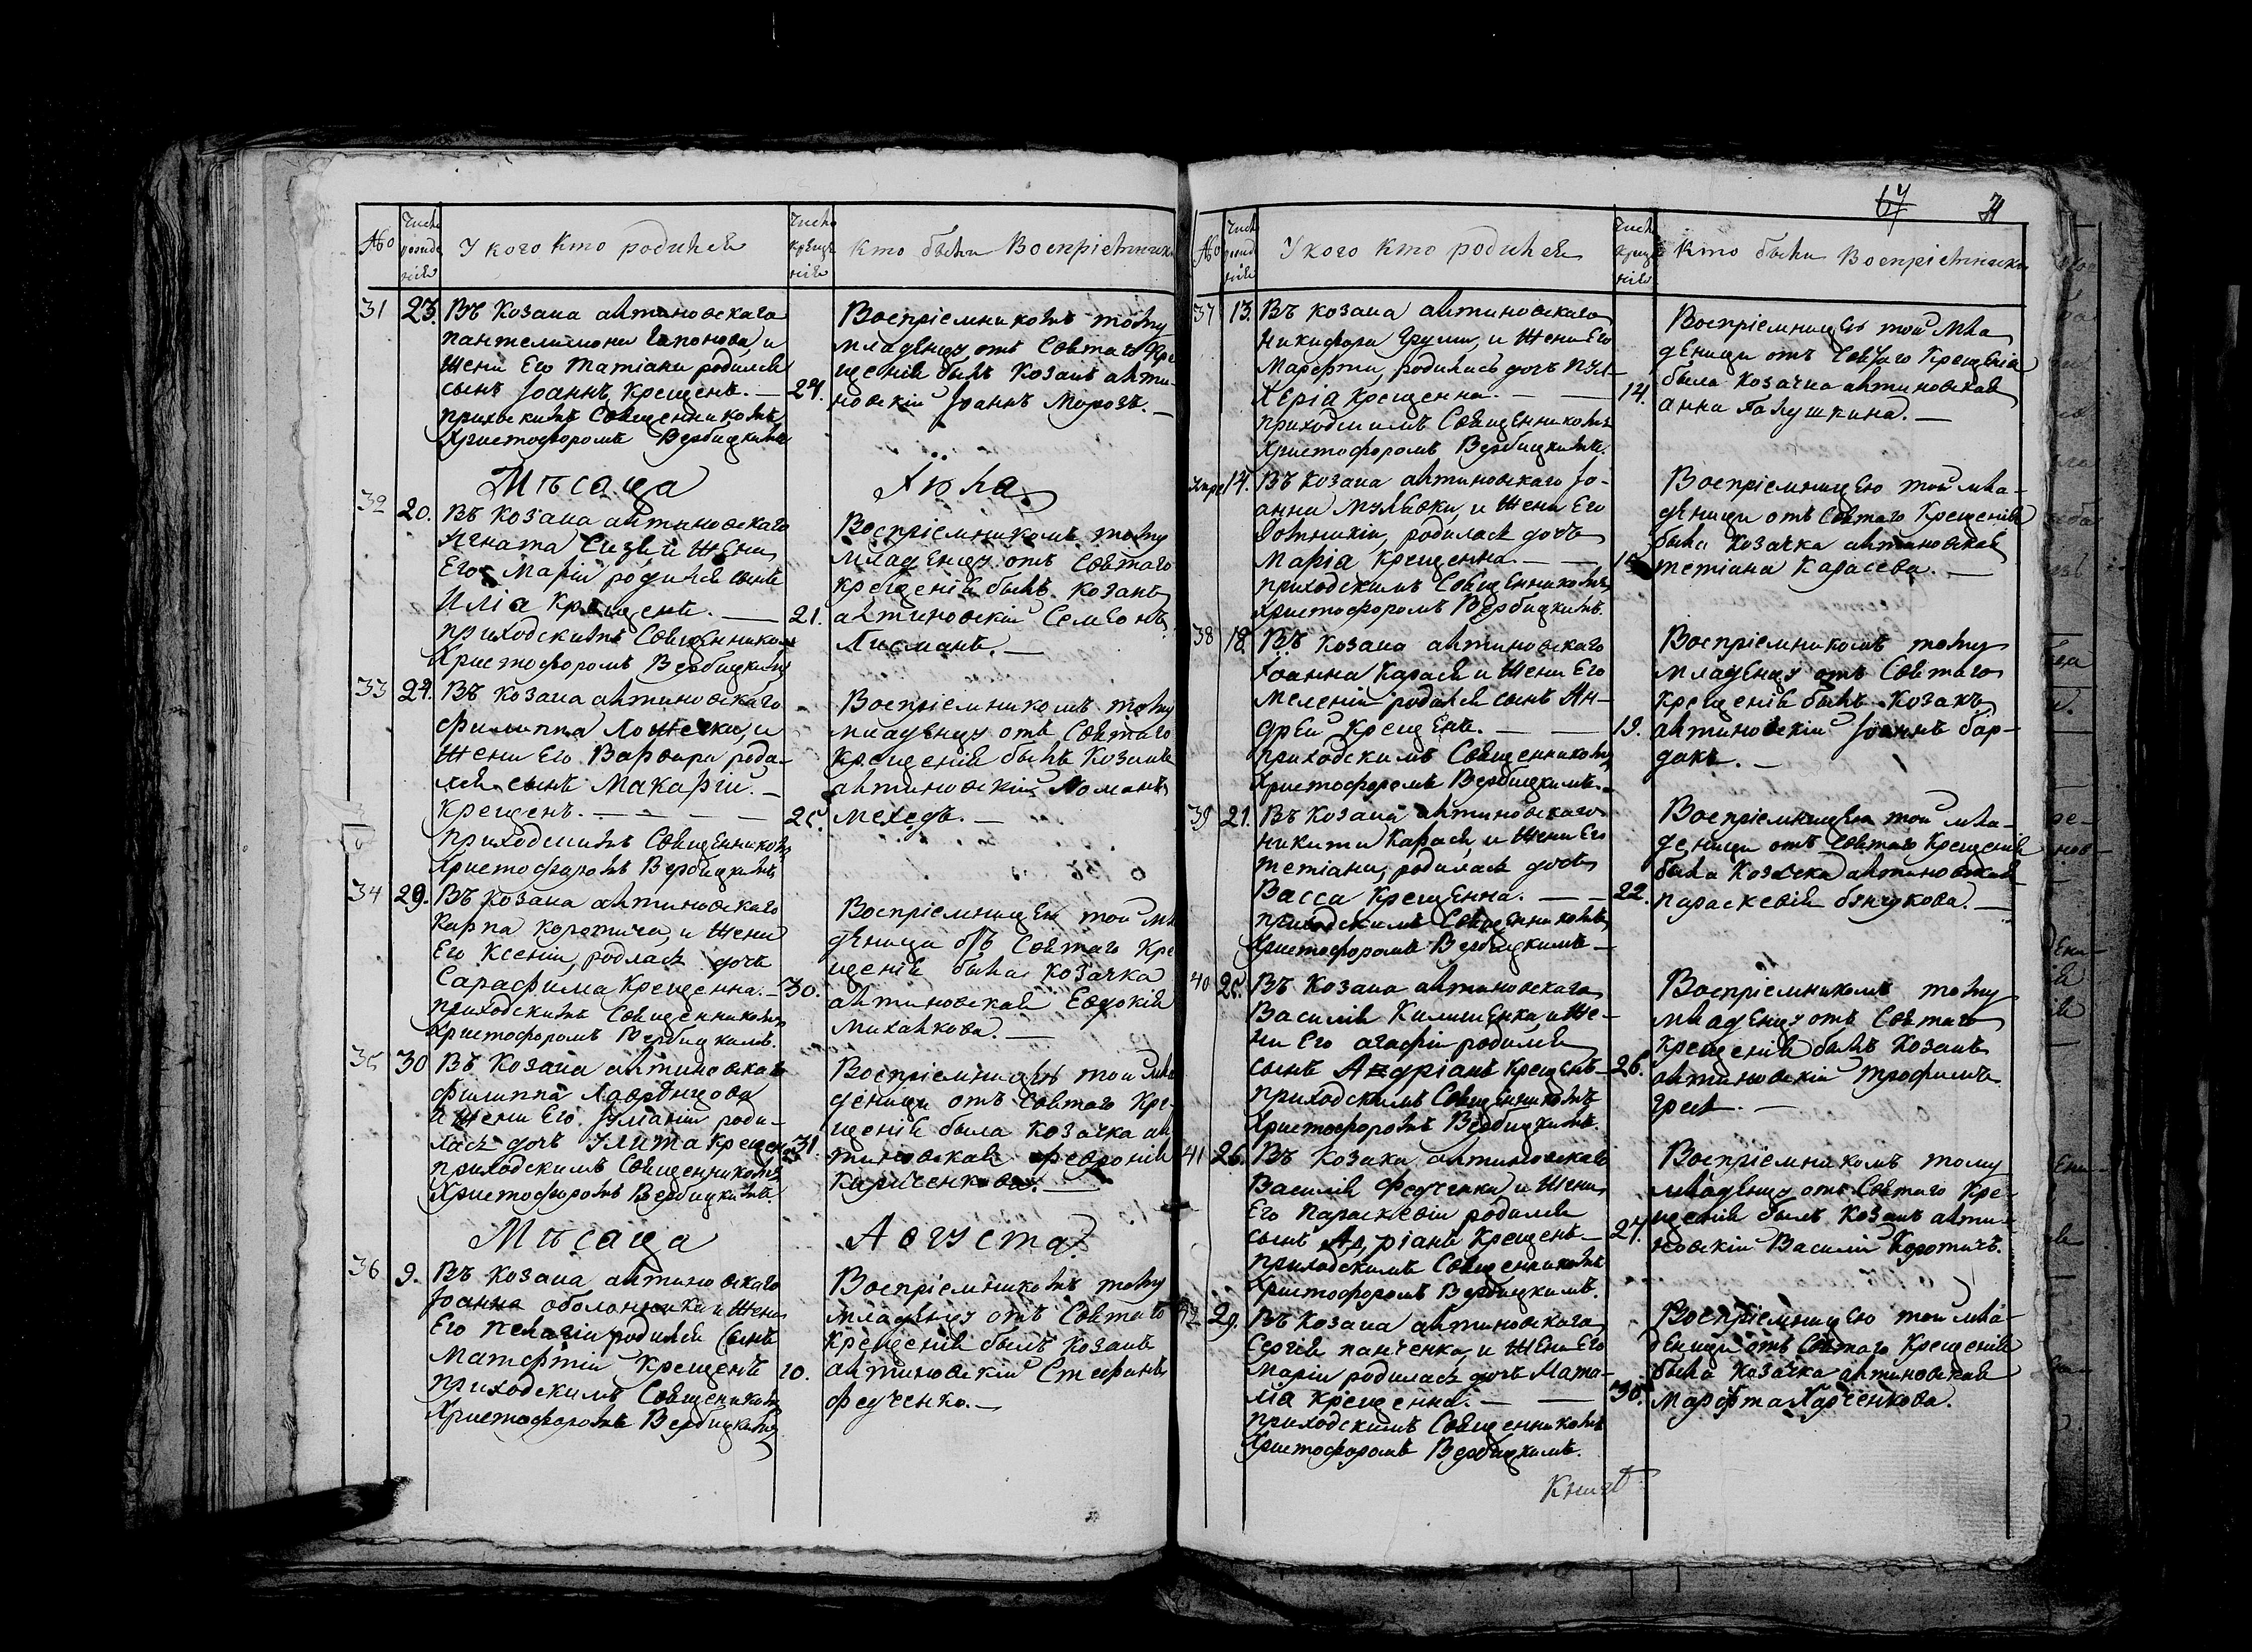 67
№
Число рожденія
У кого кто родился
Число крещенія
Кто были Восприемники
31
23.
Въ Козака антиновскаго
Пантелимона Гапонова, и
жени Его Татіани родился
сынъ Іоаннъ, Крещенъ. —
приходскимъ Священникомъ
Христофоромъ Вербицкимъ
24.
Воспріемникомъ тому
младенцу отъ Святаго Кре
щенія былъ Козакъ анти-
новскій Іоаннъ Морозъ. —
Мѣсяца
Іюля
32
20.
Въ Козака антиновскаго
Игната и жени
Его Маріи родился сынъ
Иліа Крещенъ. —
приходскимъ Священникомъ
Христофоромъ Вербицкимъ
21.
Воспріемникомъ тому
младенцу отъ Святаго
крещенія былъ Козакъ
антиновскій Семеонъ
Лисманъ. —
33
24.
Въ Козака антиновскаго
Филиппа и
жени Его Варвари роди-
лся сынъ Макарій. —
Крещенъ. — — — —
приходскимъ Священникомъ
Христофоромъ Вербицкимъ
25.
Воспріемникомъ тому
младенцу отъ Святаго
крещенія былъ Козакъ
антиновскій Романъ
Мехедъ. —
34
29.
Въ Козака антиновскаго
Карпа Коротича, и жени
Его Ксеніи, родлась дочь
Сарафима Крещенна. —
приходскимъ Священникомъ
Христофоромъ Вербицкимъ.
30.
Воспріемницею той мла
деница отъ Святаго Кре
щенія была козачка
антиновская Евдокія
Михайкова. —
35
30
Въ Козака антиновскаго
Филиппа Лавренцова
и жени Его Іуліаніи роди-
лась дочь Улита Крещен
приходскимъ Священникомъ
Христофоромъ Вербицкимъ.
31.
Воспріемницею той мла
деници отъ Святаго Кре-
щенія была козачка ан
тиновская Февронія
Кириченкова. —
Мѣсяца
Августа
36
9.
Въ Козака антиновскаго
Іоанна оболонника и жени
Его Пелагіи родился сынъ
Матфтій Крещенъ
приходскимъ Священикомъ
Христофоромъ Вербицкимъ
10.
Воспріемникомъ тому
младенцу отъ Святаго
Крещенія былъ Козакъ
антиновскій Стефанъ
Федченко. —
№
Число рожденія
У кого кто родился
Число крещенія
Кто были Восприемники
37
13.
Въ козака антиновскаго
Никифора Груши, и жени Его
Марфти, родилась дочь Пул-
херіа крещенна. — —
приходскимъ Священникомъ
Христофоромъ Вербицкимъ.
14.
Воспріемницею той мла
деници отъ Святаго Крещеніа
была козачка антиновская
анна Галушкина. —
14.
Въ Козака антиновскаго Іо-
анна Мулявки, и жени Его
Фотинкіи, родилась дочь
Маріа крещенна. — —
приходскимъ Священникомъ
Христофоромъ Вербицкимъ.
15
Воспріемницею той мла-
деници отъ Святаго Крещенія
была Козачка антиновская
Тетіана Карасева. —
38
18.
Въ Козака антиновскаго
Іоанна Карася и жени Его
Меленіи родился сынъ Ан-
дрей Крещенъ. — —
приходскимъ Священникомъ
Христофоромъ Вербицкимъ.
19.
Воспріемникомъ тому
младенцу отъ Святаго
крещенія былъ Козакъ
антиновскій Іоаннъ бар-
дакъ. —
39
21.
Въ Козака антиновскаго
Никити Карася, и жени Его
Тетіани, родилась дочь
Васса Крещенна. — —
приходскимъ Священникомъ
Христофоромъ Вербицкимъ —
22.
Воспріемницею той мла-
деници отъ Святаго Крещенія
была Козачка антиновская
Параскевія бунчукова. —
40
25.
Въ Козака антиновскаго
Василія Клишенка и же-
ни Его агафіи родился
сынъ Андріанъ Крещенъ —
приходскимъ Священникомъ
Христофоромъ Вербицкимъ.
26.
Воспріемникомъ тому
младенцу отъ Святаго
Крещенія былъ Козакъ
антиновскій Трофимъ
—
41
26.
Въ Козака антиновскаго
Василія Федченка и жени
Его Параскевіи родился
сынъ Адріанъ Крещенъ —
приходскимъ Священникомъ
Христофоромъ Вербицкимъ.
27.
Воспріемникомъ тому
младенцу отъ Святаго Кре-
щенія былъ Козакъ анти-
новскій Василій Коротичъ.
42
29.
Въ Козака антиновскаго
Сергія Панченка, и жени Его
Маріи родилась дочь Ната-
ліа крещенна. — —
приходскимъ Священникомъ
Христофоромъ Вербицкимъ.
30.
Воспріемницею той мла-
деници отъ Святаго Крещенія
была козачка антиновская
Марфта Харченкова.